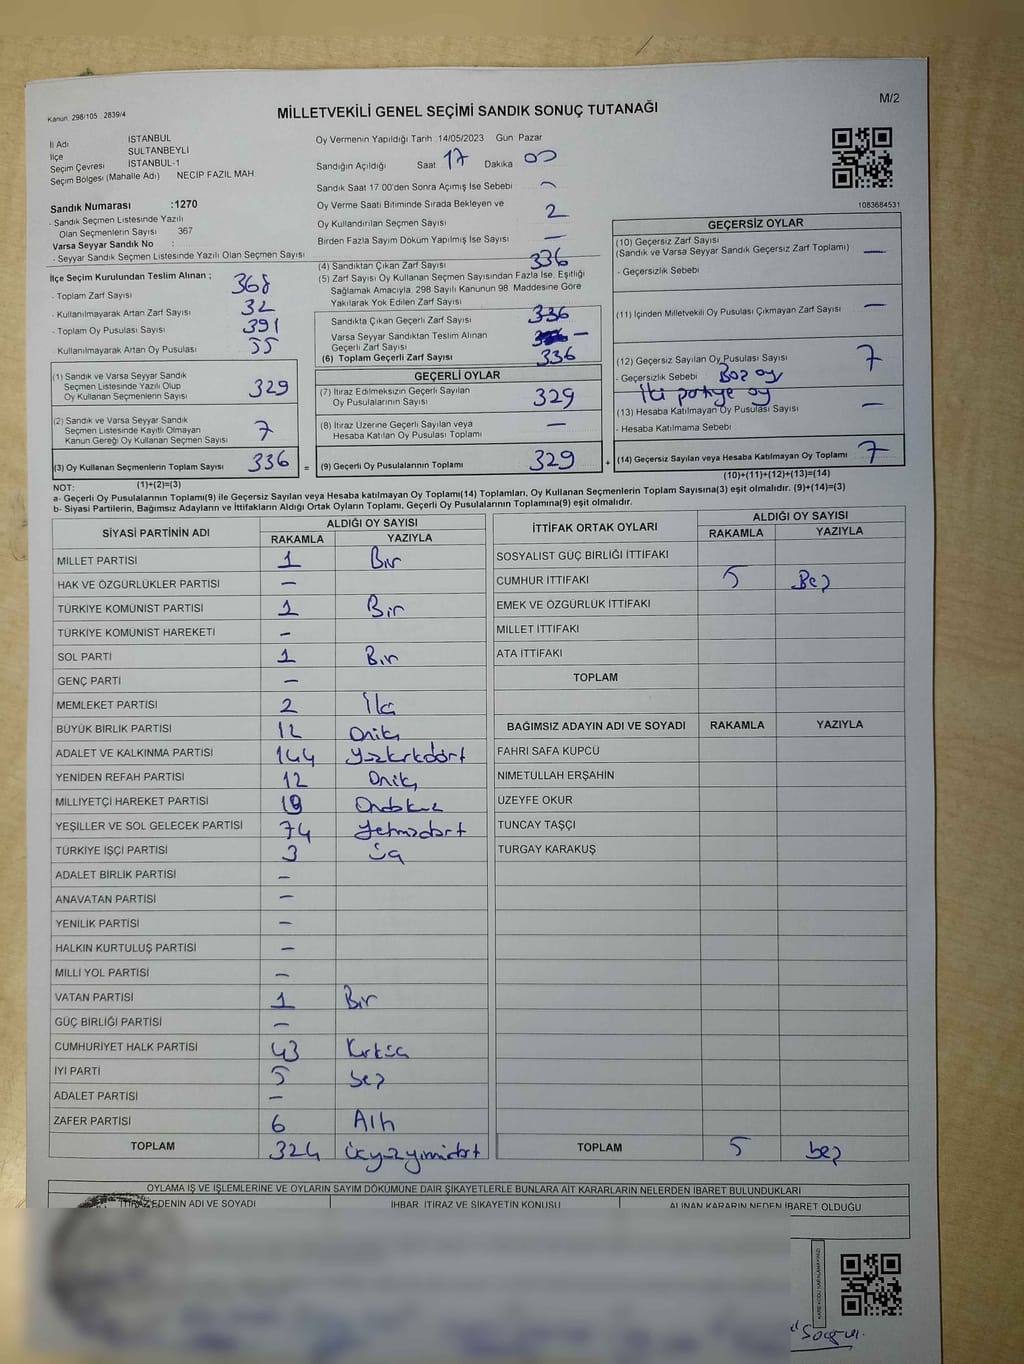 Kanun. 298/105 . 2839/4
MİLLETVEKİLİ GENEL SEÇİMİ SANDIK SONUÇ TUTANAĞI
M/2
İl Adı İSTANBUL
İlçe SULTANBEYLİ
Seçim Çevresi İSTANBUL-1
Seçim Bölgesi (Mahalle Adı) NECİP FAZIL MAH.
Sandık Numarası :1270
- Sandık Seçmen Listesinde Yazılı
Olan Seçmenlerin Sayısı 367
Varsa Seyyar Sandık No :
- Seyyar Sandık Seçmen Listesinde Yazılı Olan Seçmen Sayısı
İlçe Seçim Kurulundan Teslim Alınan ;
- Toplam Zarf Sayısı 368
- Kullanılmayarak Artan Zarf Sayısı 32
- Toplam Oy Pusulası Sayısı 391
- Kullanılmayarak Artan Oy Pusulası 55
(1) Sandık ve Varsa Seyyar Sandık
Seçmen Listesinde Yazılı Olup
Oy Kullanan Seçmenlerin Sayısı 329
(2) Sandık ve Varsa Seyyar Sandık
Seçmen Listesinde Kayıtlı Olmayan
Kanun Gereği Oy Kullanan Seçmen Sayısı 7
(3) Oy Kullanan Seçmenlerin Toplam Sayısı 336
(1)+(2)=(3)
Oy Vermenin Yapıldığı Tarih :14/05/2023 Gün: Pazar
Sandığın Açıldığı Saat 17 Dakika 00
Sandık Saat 17:00'den Sonra Açımış İse Sebebi
Oy Verme Saati Bitiminde Sırada Bekleyen ve
Oy Kullandırılan Seçmen Sayısı 2
Birden Fazla Sayım Döküm Yapılmış İse Sayısı —
(4) Sandıktan Çıkan Zarf Sayısı 336
(5) Zarf Sayısı Oy Kullanan Seçmen Sayısından Fazla İse, Eşitliği
Sağlamak Amacıyla, 298 Sayılı Kanunun 98. Maddesine Göre
Yakılarak Yok Edilen Zarf Sayısı
Sandıkta Çıkan Geçerli Zarf Sayısı 336
Varsa Seyyar Sandıktan Teslim Alınan
Geçerli Zarf Sayısı —
(6) Toplam Geçerli Zarf Sayısı 336
GEÇERLİ OYLAR
(7) İtiraz Edilmeksizin Geçerli Sayılan
Oy Pusulalarının Sayısı 329
(8) İtiraz Üzerine Geçerli Sayılan veya
Hesaba Katılan Oy Pusulası Toplamı —
= (9) Geçerli Oy Pusulalarının Toplamı 329 +
1083684531
GEÇERSİZ OYLAR
(10) Geçersiz Zarf Sayısı
(Sandık ve Varsa Seyyar Sandık Geçersiz Zarf Toplamı) —
- Geçersizlik Sebebi
(11) İçinden Milletvekili Oy Pusulası Çıkmayan Zarf Sayısı —
(12) Geçersiz Sayılan Oy Pusulası Sayısı 7
- Geçersizlik Sebebi Boş oy
İki partiye oy
(13) Hesaba Katılmayan Oy Pusulası Sayısı —
- Hesaba Katılmama Sebebi
(14) Geçersiz Sayılan veya Hesaba Katılmayan Oy Toplamı 7
(10)+(11)+(12)+(13)=(14)
NOT:
a- Geçerli Oy Pusulalarının Toplamı(9) ile Geçersiz Sayılan veya Hesaba katılmayan Oy Toplamı(14) Toplamları, Oy Kullanan Seçmenlerin Toplam Sayısına(3) eşit olmalıdır. (9)+(14)=(3)
b- Siyasi Partilerin, Bağımsız Adayların ve İttifakların Aldığı Ortak Oyların Toplamı, Geçerli Oy Pusulalarının Toplamına(9) eşit olmalıdır.
SİYASİ PARTİNİN ADI ALDIĞI OY SAYISI
RAKAMLA YAZIYLA
MİLLET PARTİSİ 1 Bir
HAK VE ÖZGÜRLÜKLER PARTİSİ —
TÜRKİYE KOMÜNİST PARTİSİ 1 Bir
TÜRKİYE KOMÜNİST HAREKETİ -
SOL PARTİ 1 Bir
GENÇ PARTİ —
MEMLEKET PARTİSİ 2 İki
BÜYÜK BİRLİK PARTİSİ 12 Oniki
ADALET VE KALKINMA PARTİSİ 144 Yüzkırkdört
YENİDEN REFAH PARTİSİ 12 Oniki
MİLLİYETÇİ HAREKET PARTİSİ 19 Ondokuz
YEŞİLLER VE SOL GELECEK PARTİSİ 74 Yetmişdört
TÜRKİYE İŞÇİ PARTİSİ 3 Üç
ADALET BİRLİK PARTİSİ —
ANAVATAN PARTİSİ —
YENİLİK PARTİSİ —
HALKIN KURTULUŞ PARTİSİ —
MİLLİ YOL PARTİSİ —
VATAN PARTİSİ 1 Bir
GÜÇ BİRLİĞİ PARTİSİ —
CUMHURİYET HALK PARTİSİ 43 Kırküç
İYİ PARTİ 5 beş
ADALET PARTİSİ —
ZAFER PARTİSİ 6 Altı
TOPLAM 324 üçyüzyirmidört
İTTİFAK ORTAK OYLARI ALDIĞI OY SAYISI
RAKAMLA YAZIYLA
SOSYALİST GÜÇ BİRLİĞİ İTTİFAKI
CUMHUR İTTİFAKI 5 Beş
EMEK VE ÖZGÜRLÜK İTTİFAKI
MİLLET İTTİFAKI
ATA İTTİFAKI
TOPLAM
BAĞIMSIZ ADAYIN ADI VE SOYADI RAKAMLA YAZIYLA
FAHRİ SAFA KÜPCÜ
NİMETULLAH ERŞAHİN
ÜZEYFE OKUR
TUNCAY TAŞÇI
TURGAY KARAKUŞ
TOPLAM 5 beş
OYLAMA İŞ VE İŞLEMLERİNE VE OYLARIN SAYIM DÖKÜMÜNE DAİR ŞİKAYETLERLE BUNLARA AİT KARARLARIN NELERDEN İBARET BULUNDUKLARI
İTİRAZ EDENİN ADI VE SOYADI İHBAR, İTİRAZ VE ŞİKAYETİN KONUSU ALINAN KARARIN NEDEN İBARET OLDUĞU